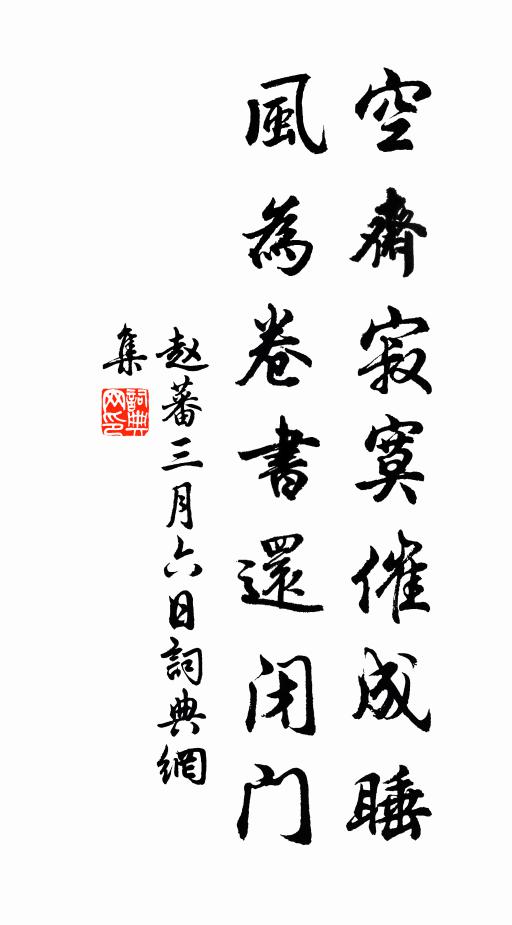 空齋寂寞催成睡
風為卷書還闭门
赵蕃三月六日詞典網
集
詞典
网印